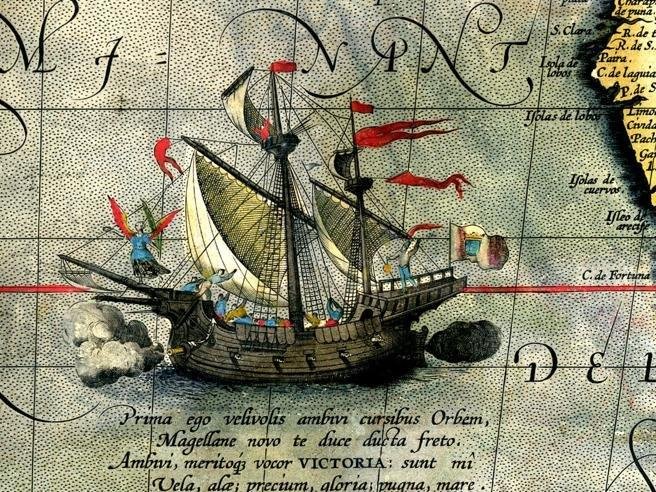 MI-NANT,
de puna.
S. Clara.
R. de t
R. de S.
Paita.
Isola de
lobos
C. de laguia
P. de S
Isolas de lobos
Limo
Civida
Pach
Isolas de
cuervos
Isleo de
arecife
C. de Fortuna
DEL
Prima ego velivolis ambivi cursibus Orbem,
Magellane novo te duce ducta freto.
Ambivi, meritoq₃ vocor VICTORIA: sunt mî
Vela, alæ; precium, gloria; pugna, mare.